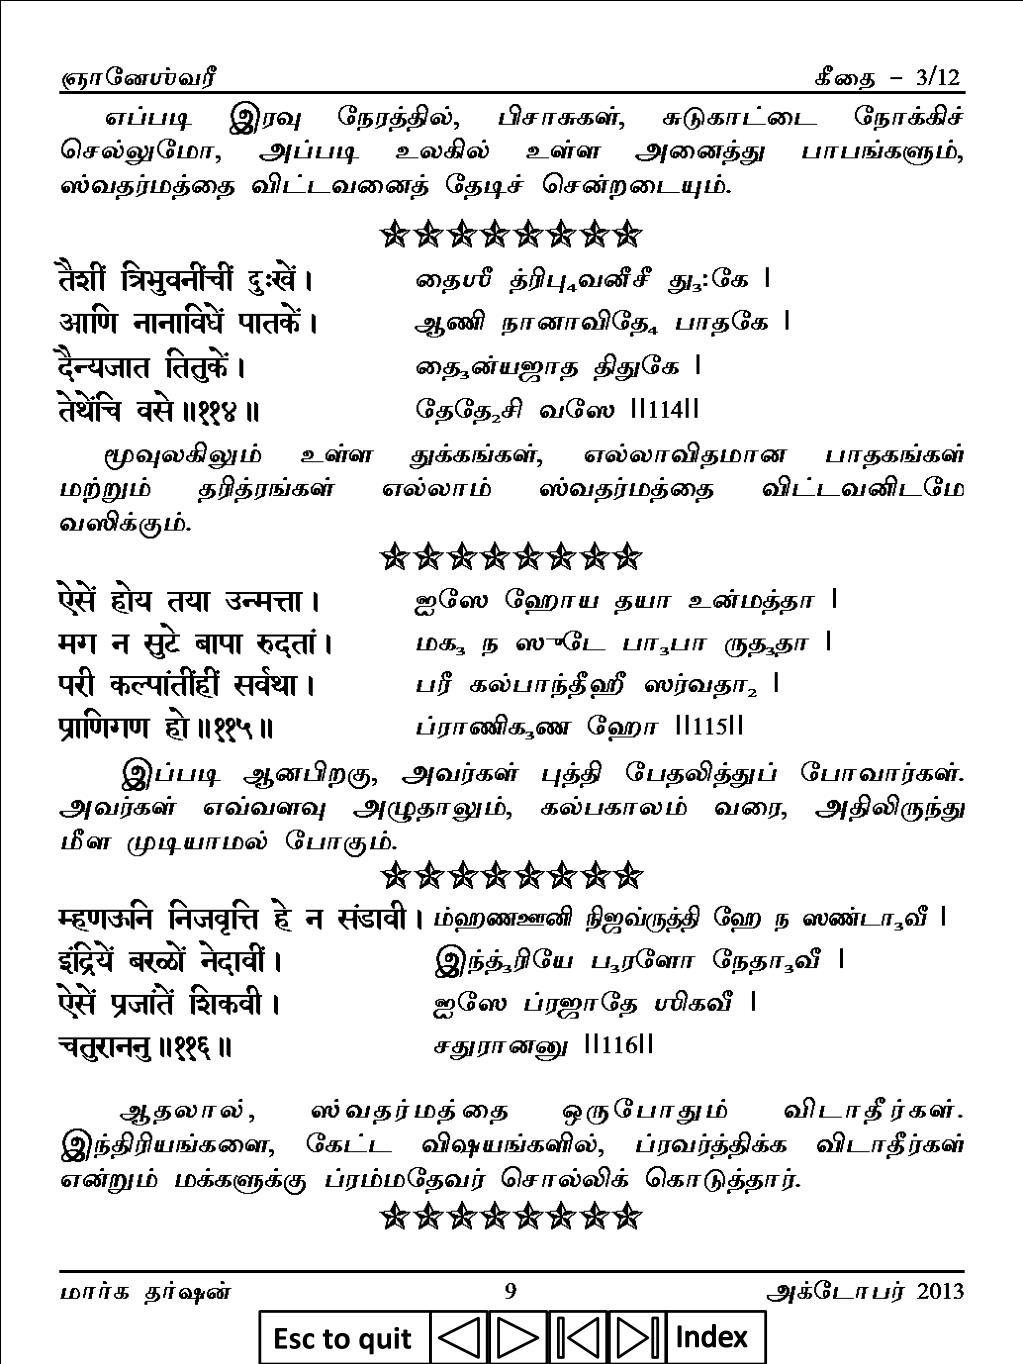 ஞானேஶ்வரீ கீதை – 3/12
எப்படி இரவு நேரத்தில், பிசாசுகள், சுடுகாட்டை நோக்கிச்
செல்லுமோ, அப்படி உலகில் உள்ள அனைத்து பாபங்களும்,
ஸ்வதர்மத்தை விட்டவனைத் தேடிச் சென்றடையும்.
तैशीं त्रिभुवनींचीं दुःखें। தைஶீ த்ரிபு₄வனீசீ து₃:கே |
आणि नानाविधें पातकें। ஆணி நானாவிதே₄ பாதகே |
दैन्यजात तितुकें। தை₃ன்யஜாத திதுகே |
तेथेंचि वसे॥११४॥ தேதே₂சி வஸே ||114||
மூவுலகிலும் உள்ள துக்கங்கள், எல்லாவிதமான பாதகங்கள்
மற்றும் தரித்ரங்கள் எல்லாம் ஸ்வதர்மத்தை விட்டவனிடமே
வஸிக்கும்.
ऐसें होय तया उन्मत्ता। ஐஸே ஹோய தயா உன்மத்தா |
मग न सुटे बापा रुदतां। மக₃ ந ஸுடே பா₃பா ருத₃தா |
परी कल्पांतींहीं सर्वथा। பரீ கல்பாந்தீஹீ ஸர்வதா₂ |
प्राणिगण हो॥११५॥ ப்ராணிக₃ண ஹோ ||115||
இப்படி ஆனபிறகு, அவர்கள் புத்தி பேதலித்துப் போவார்கள்.
அவர்கள் எவ்வளவு அழுதாலும், கல்பகாலம் வரை, அதிலிருந்து
மீள முடியாமல் போகும்.
म्हणऊनि निजवृत्ति हे न संडावी। ம்ஹணஊனி நிஜவ்ருத்தி ஹே ந ஸண்டா₃வீ |
इंद्रियें बरळों नेदावीं। இந்த்₃ரியே ப₃ரளோ நேதா₃வீ |
ऐसें प्रजांतें शिकवी। ஐஸே ப்ரஜாதே ஶிகவீ |
चतुराननु॥११६॥ சதுரானனு ||116||
ஆதலால், ஸ்வதர்மத்தை ஒருபோதும் விடாதீர்கள்.
இந்திரியங்களை, கேட்ட விஷயங்களில், ப்ரவர்த்திக்க விடாதீர்கள்
என்றும் மக்களுக்கு ப்ரம்மதேவர் சொல்லிக் கொடுத்தார்.
மார்க தர்ஷன் 9 அக்டோபர் 2013
Esc to quit Index